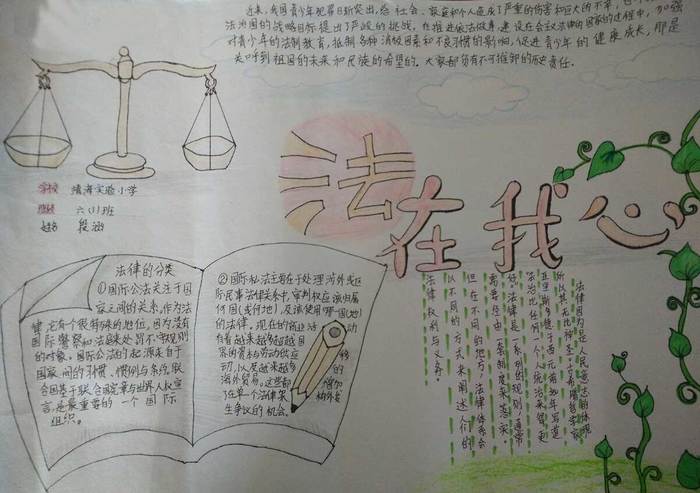 近来，我国青少年犯罪日渐突出，给社会、家庭和个人造成了严重的伤害和巨大的不幸，也
法治国的战略目标提出了严峻的挑战，在推进依法做事，建设社会主义法律的国家的过程中，加强
对青少年的法制教育，抵制各种消极因素和不良习惯的影响，促进青少年的健康成长，那是
关呼到祖国的未来和民族的希望的。大家都负有不可推卸的历史责任。
法在我心
学校 靖海实验小学
班级 六(1)班
姓名 段涵
法律的分类
①国际公法关注于国
家之间的关系。作为法
律，它有个很特殊的地位，因为没有
国际警察和法庭来处罚不守规则
的对象。国际公法的起源来自于
国家间的习惯、惯例与条约，联
合国基于联合国宪章与世界人权宣
言，是最重要的一个国际
组织。
②国际私法主要在于处理涉外或区
际民事法律关系中，审判权应该归属
何国(或何地)及该使用哪国(地)
的法律。现在的商业活动
有着越来越多超越国
界的资本与劳动供应
移动，以及越来越多
的海外贸易。这些都
增加了在单个法律架
构外发生争议的机会。
法律因为是人民意志的体现
所以其无比神圣。古希腊哲学家
亚里斯多德于西元前350年写道
法治比任何一个人统治来得更
好。法律是一系列的规则，通常
需要经由一套制度来落实。
但在不同的地方，法律体系会
以不同的方式来阐述人们的
法律权利与义务。